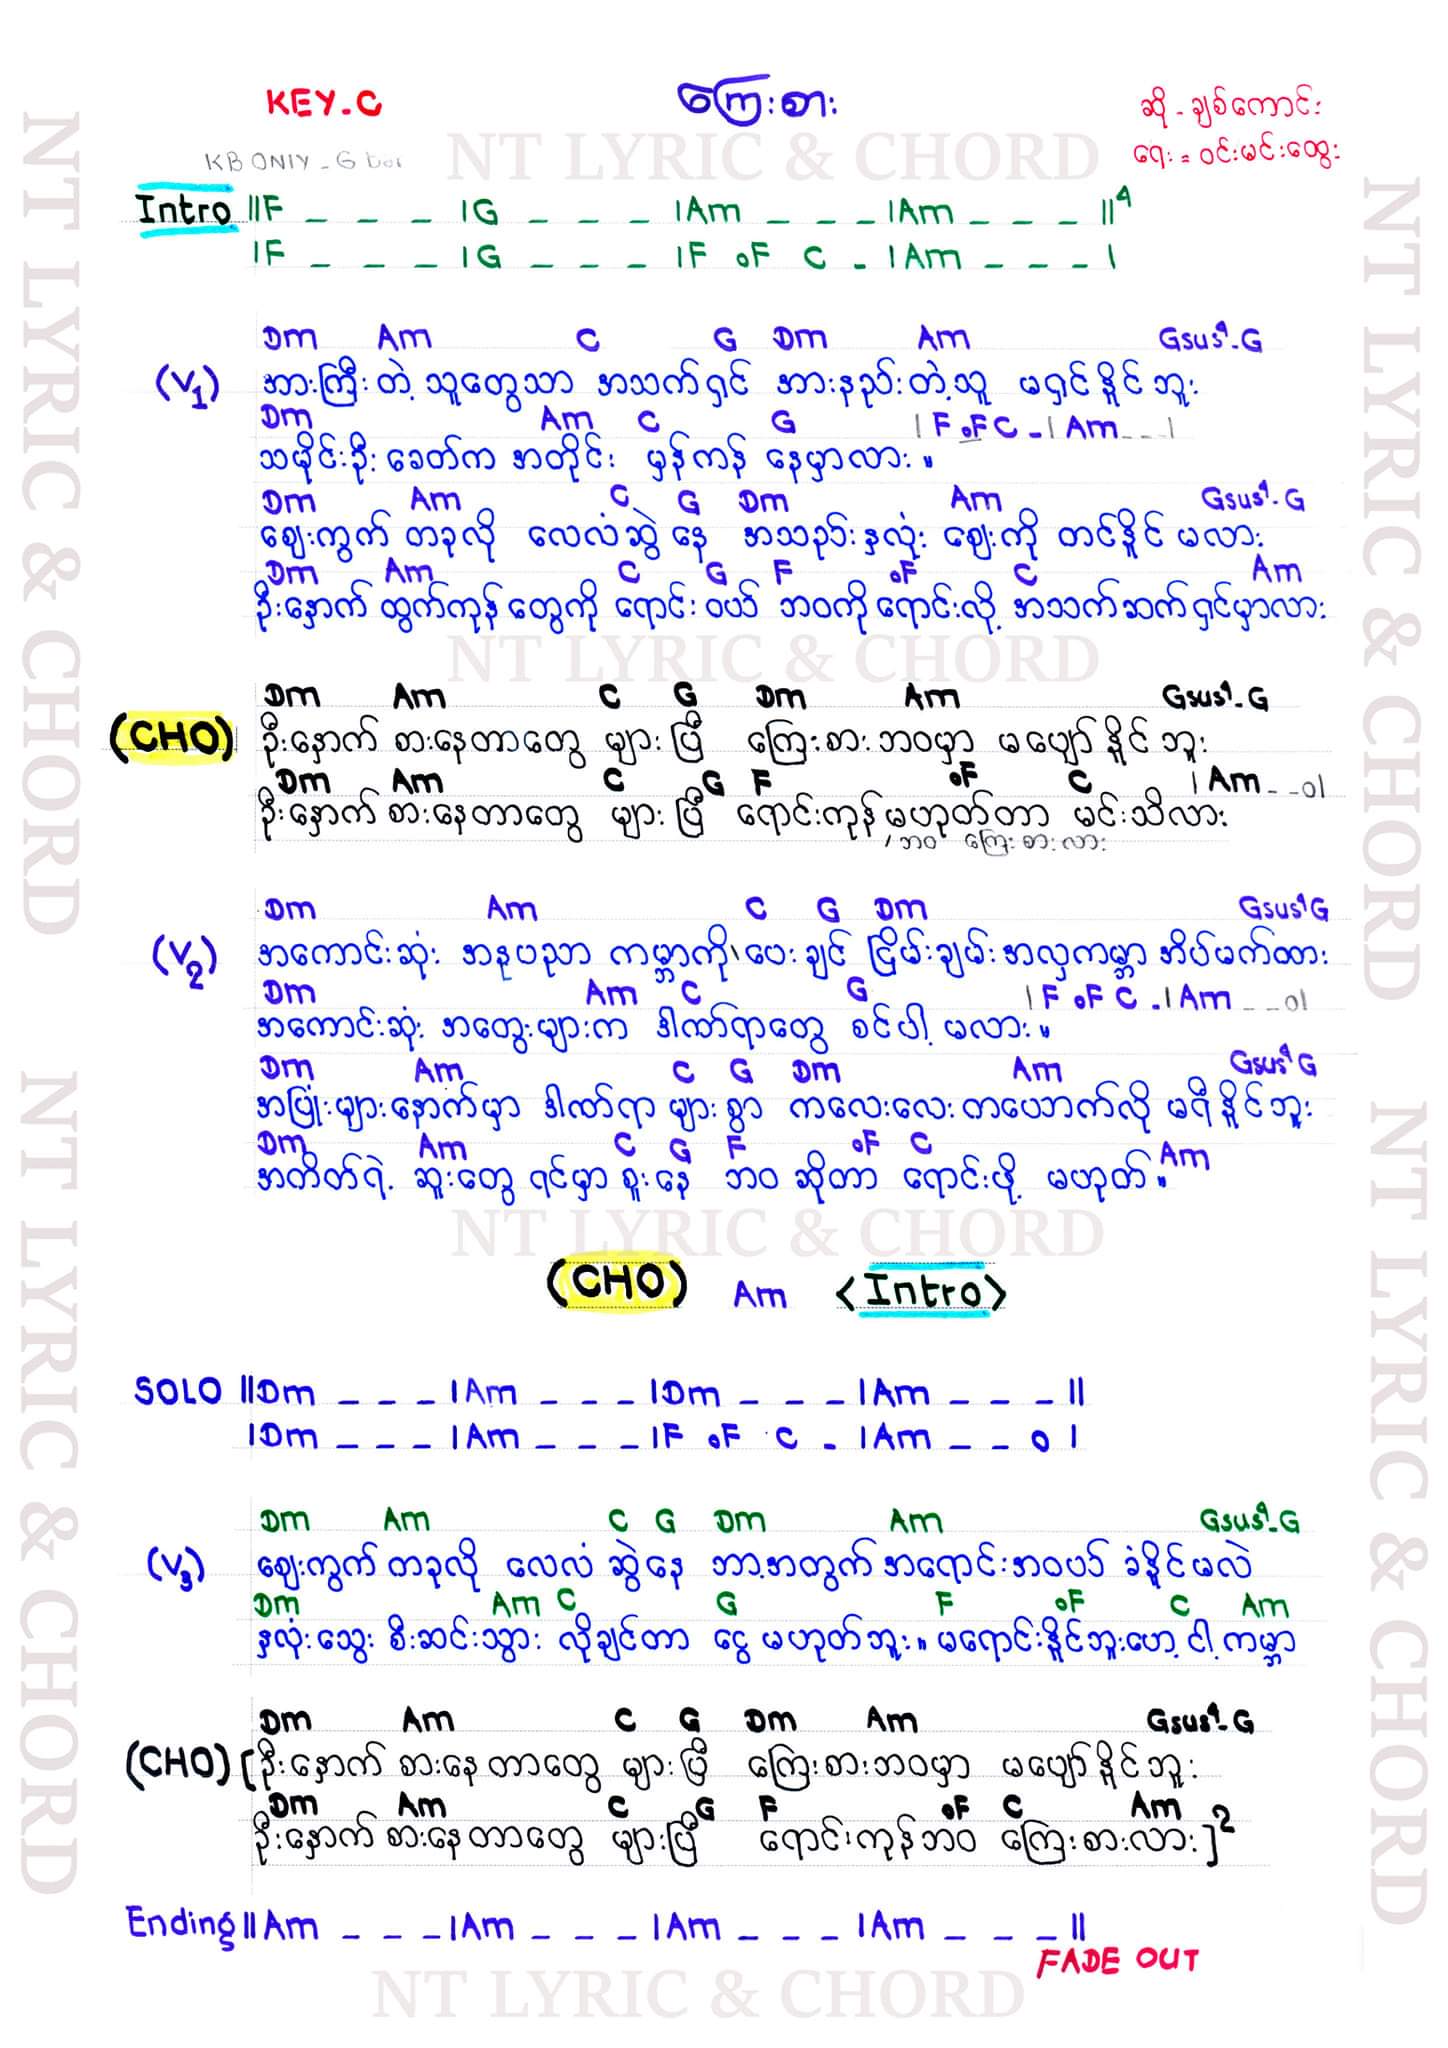 KEY-C
ကြေးစား
ဆို - ချစ်ကောင်း
ရေး = ဝင်းမင်းထွေး
KB ONLY - G
NT LYRIC & CHORD
Intro ||F _ _ _ |G _ _ _ |Am _ _ _ |Am _ _ _ ||4
|F _ _ _ |G _ _ _ |F oF C - |Am _ _ _ |
Dm Am C G Dm Am Gsus4-G
(V1) အားကြီးတဲ့ သူတွေသာ အသက်ရှင် အားနည်းတဲ့သူ မရှင်နိုင်ဘူး
Dm Am C G | F oF C - | Am _ _ _ |
သမိုင်းဦးခေတ်က အတိုင်း မှန်ကန် နေမှာလား။
Dm Am C G Dm Am Gsus4-G
ဈေးကွက် တခုလို လေလံဆွဲ နေ အသည်းနှလုံး ဈေးကို တင်နိုင် မလား
Dm Am C G F oF C Am
ဦးနှောက် ထွက်ကုန်တွေကို ရောင်း ဝယ် ဘဝကို ရောင်းလို့ အသက်ဆက်ရှင်မှာလား
NT LYRIC & CHORD
Dm Am C G Dm Am Gsus4-G
(CHO) ဦးနှောက် စားနေတာတွေ များ ပြီ ကြေးစား ဘဝမှာ မပျော်နိုင်ဘူး
Dm Am C G F oF C | Am _ _ o|
ဦးနှောက် စားနေတာတွေ များ ပြီ ရောင်းကုန် မဟုတ်တာ မင်းသိလား
ဘဝ ကြေးစားလား
Dm Am C G Dm Gsus4G
(V2) အကောင်းဆုံး အနုပညာ ကမ္ဘာကို ပေးချင် ငြိမ်းချမ်းအလှကမ္ဘာ အိပ်မက်ထား
Dm Am C G | F oF C - | Am _ _ o|
အကောင်းဆုံး အတွေးများက ဒါဏ်ရာတွေ စင်ပါ့ မလား။
Dm Am C G Dm Am Gsus4G
အပြုံးများနောက်မှာ ဒါဏ်ရာ များ စွာ ကလေးလေး တယောက်လို မရီနိုင်ဘူး
Dm Am C G F oF C Am
အတိတ်ရဲ့ ဆူးတွေ ရင်မှာ စူးနေ ဘဝ ဆိုတာ ရောင်းဖို့ မဟုတ်။
NT LYRIC & CHORD
(CHO) Am <Intro>
SOLO ||Dm _ _ _ |Am _ _ _ |Dm _ _ _ |Am _ _ _ ||
|Dm _ _ _ |Am _ _ _ |F oF C - |Am _ _ o |
Dm Am C G Dm Am Gsus4-G
(V3) ဈေးကွက် တခုလို လေလံ ဆွဲနေ ဘာ့အတွက် အရောင်းအဝယ် ခံနိုင်မလဲ
Dm Am C G F oF C Am
နှလုံးသွေး စီးဆင်းသွား လိုချင်တာ ငွေ မဟုတ်ဘူး။ မရောင်းနိုင်ဘူးဟေ့ ငါ့ကမ္ဘာ
Dm Am C G Dm Am Gsus4-G
(CHO) [ဦးနှောက် စားနေတာတွေ များပြီ ကြေးစားဘဝမှာ မပျော်နိုင်ဘူး
Dm Am C G F oF C Am
ဦးနှောက် စားနေတာတွေ များပြီ ရောင်းကုန်ဘဝ ကြေးစားလား]2
Ending ||Am _ _ _ |Am _ _ _ |Am _ _ _ |Am _ _ _ ||
FADE OUT
NT LYRIC & CHORD
NT LYRIC & CHORD
NT LYRIC & CHORD
NT LYRIC & CHORD
NT LYRIC & CHORD